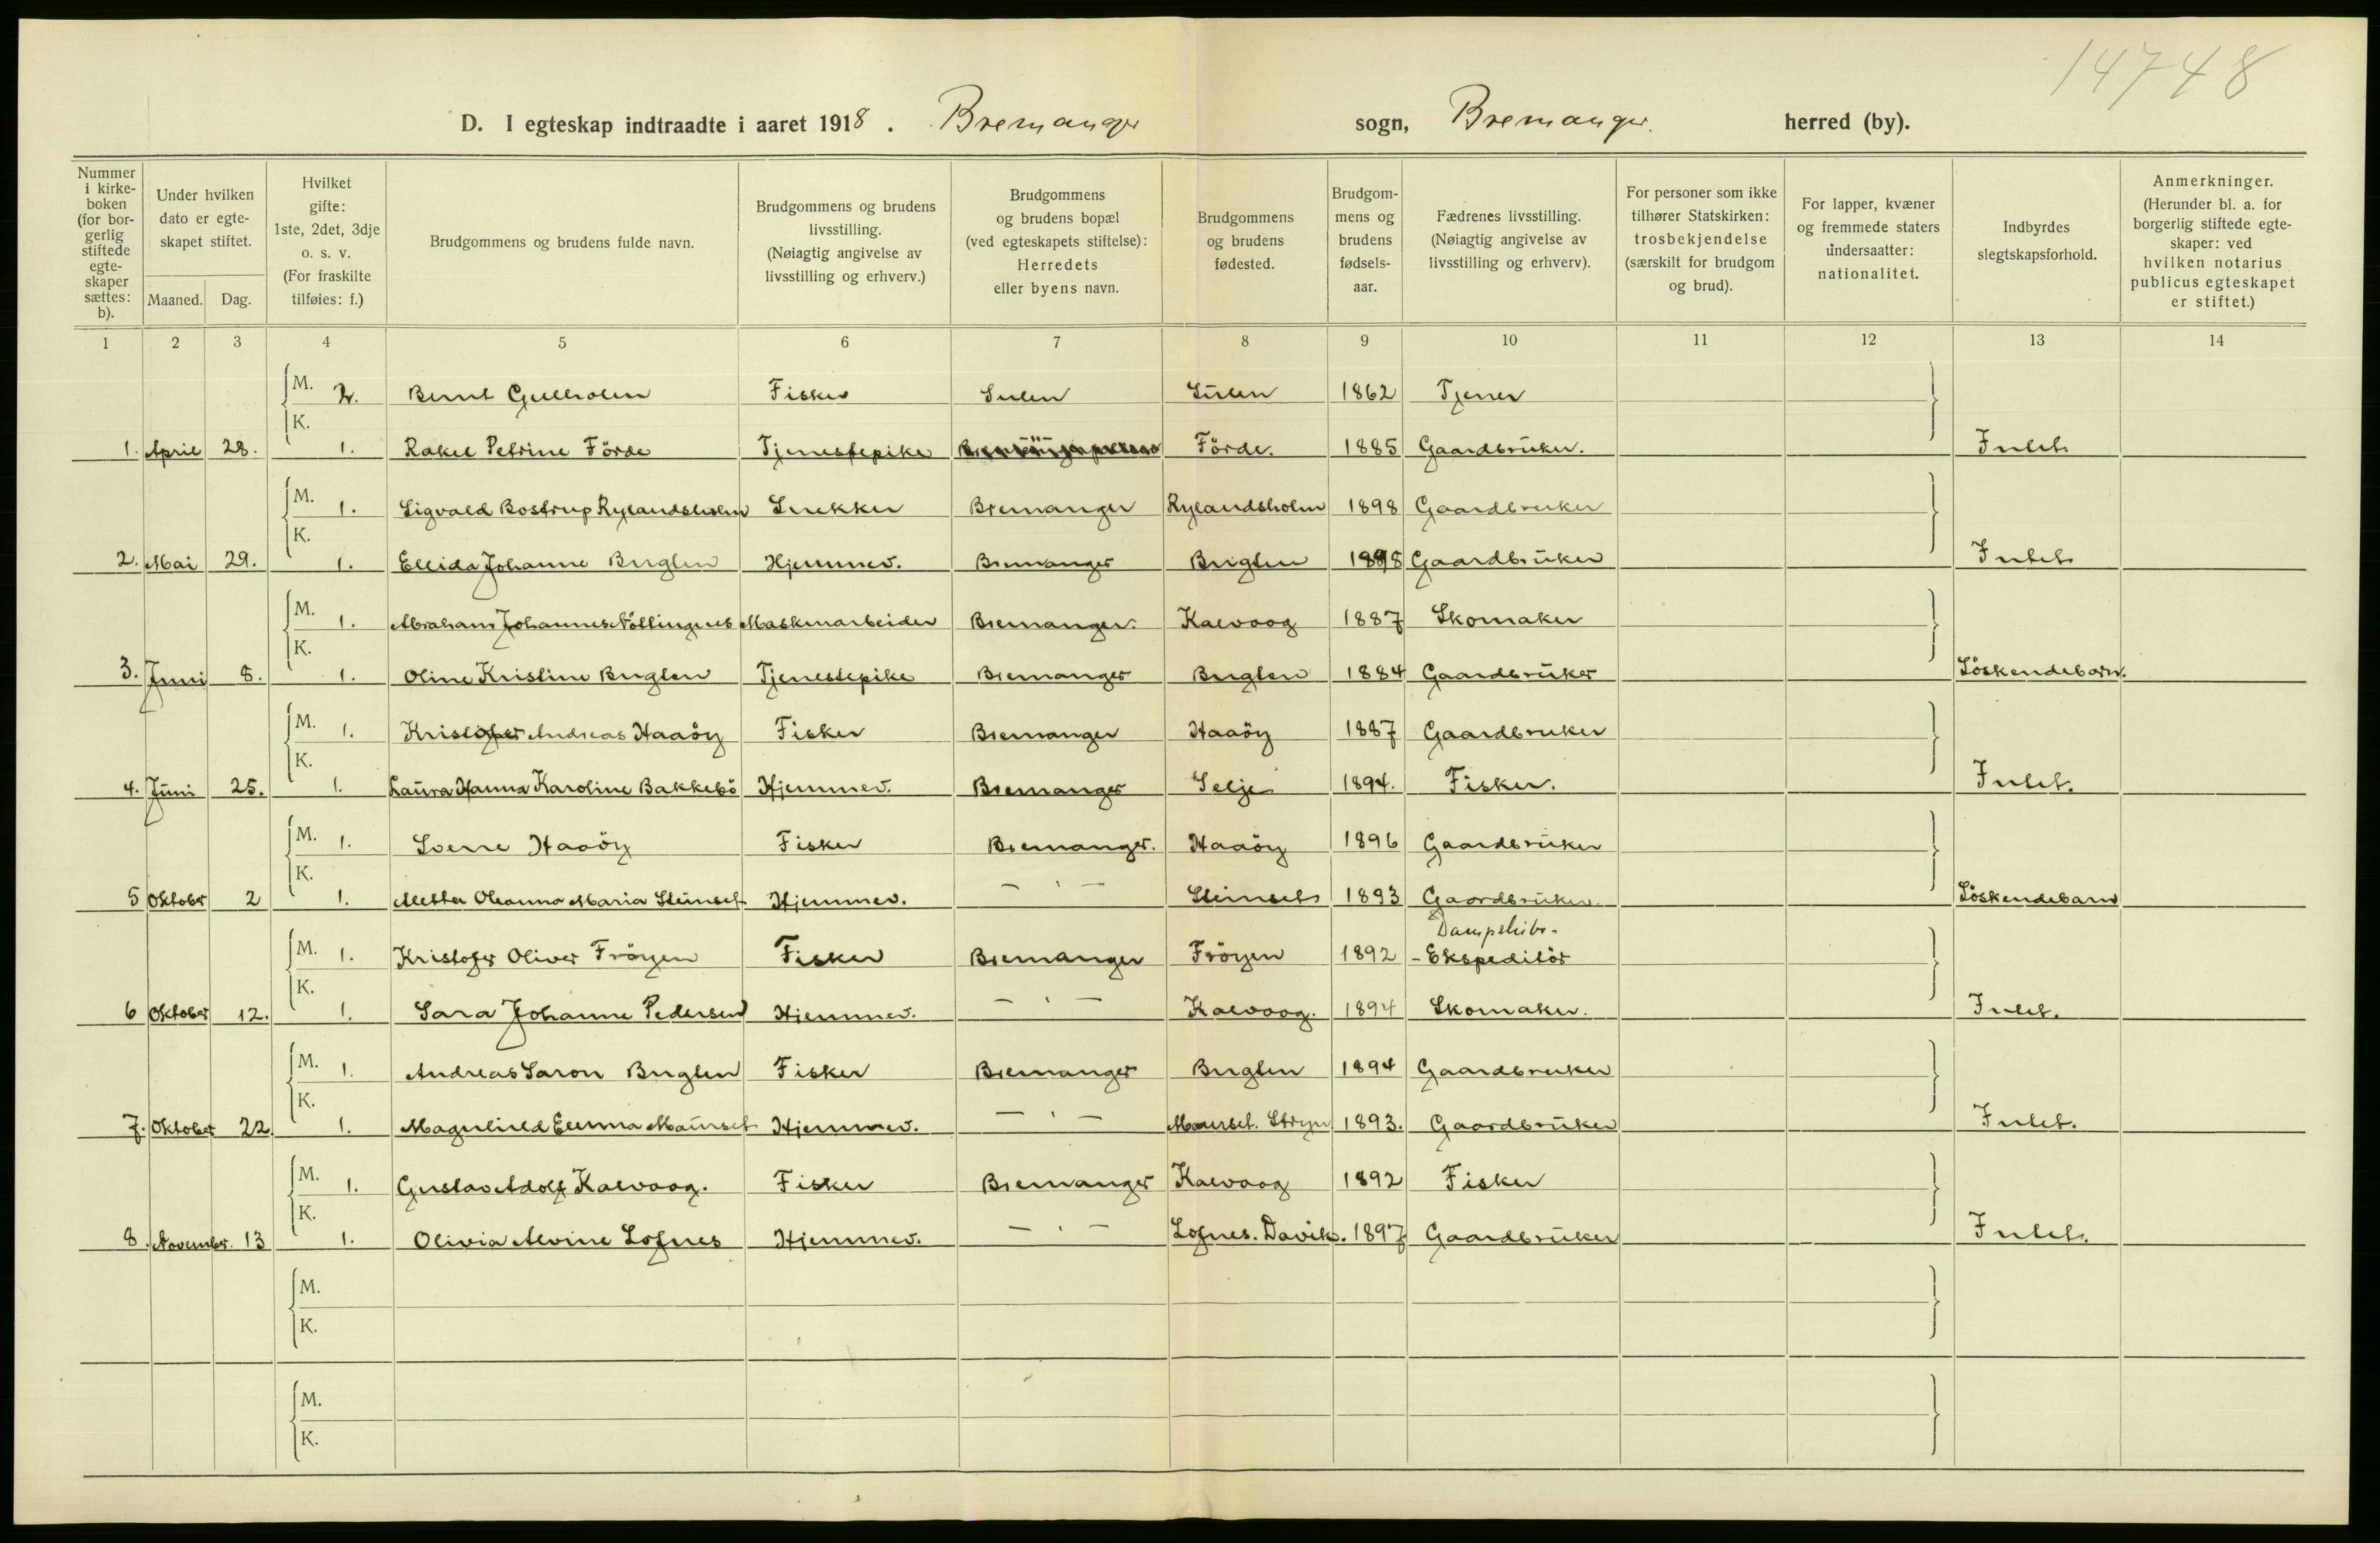 14748
D. I egteskap indtraadte i aaret 1918. Bremanger sogn, Bremanger. herred (by).
Nummer i kirke-boken (for bor-gerlig stiftede egte-skaper sættes: b).
Under hvilken dato er egte-skapet stiftet.
Maaned. Dag.
Hvilket gifte: 1ste, 2det, 3dje o. s. v. (For fraskilte tilføies: f.)
Brudgommens og brudens fulde navn.
Brudgommens og brudens livsstilling. (Nøiagtig angivelse av livsstilling og erhverv.)
Brudgommens og brudens bopæl (ved egteskapets stiftelse): Herredets eller byens navn.
Brudgommens og brudens fødested.
Brudgom-mens og brudens fødsels-aar.
Fædrenes livsstilling. (Nøiagtig angivelse av livsstilling og erhverv).
For personer som ikke tilhører Statskirken: trosbekjendelse (særskilt for brudgom og brud).
For lapper, kvæner og fremmede staters undersaatter: nationalitet.
Indbyrdes slegtskapsforhold.
Anmerkninger. (Herunder bl. a. for borgerlig stiftede egte-skaper: ved hvilken notarius publicus egteskapet er stiftet.)
1 2 3 4 5 6 7 8 9 10 11 12 13 14
M. 2. Bernt Gulholm Fisker Sulen Sulen 1862 Tjener
K. 1. April 28. 1. Rakel Petrine Förde Tjenestepike Förde. 1885 Gaardbruker. Intet.
M. 1. Sigvald Bostrup Rylandsholm Snekker Bremanger Rylandsholm 1898 Gaardbruker
K. 2. Mai 29. 1. Ellida Johanne Buglen Hjemmev. Bremanger Buglen 1898 Gaardbruker Intet.
M. 1. Abraham Johannes Nöttingnes Maskinarbeider Bremanger. Kalvaag 1887 Skomaker
K. 3. Juni 8. 1. Oline Kristine Buglen Tjenestepike Bremanger Buglen 1884 Gaardbruker Söskendebarn.
M. 1. Kristofer Andreas Haaöy Fisker Bremanger Haaöy 1887 Gaardbruker
K. 4. Juni 25. 1. Laura Hanna Karoline Bakkebö Hjemmev. Bremanger Selje 1894. Fisker. Intet.
M. 1. Sverre Haaöy Fisker Bremanger. Haaöy 1896 Gaardbruker
K. 5 Oktober 2 1. Oleanna Maria Steinset Hjemmev. — " — Steinset 1893 Gaardbruker. Söskendebarn
M. 1. Kristofer Oliver Fröyen Fisker Bremanger Fröyen 1892 Dampskibs-
-Ekspeditör
K. 6 Oktober 12. 1. Sara Johanne Pedersen Hjemmev. — " — Kalvaag. 1894 Skomaker. Intet.
M. 1. Andreas Saron Buglen Fisker Bremanger Buglen 1894 Gaardbruker
K. 7. Oktober 22. 1. Magnhild Emma Maurset Hjemmev. — " — Maurset. Stryn 1893. Gaardbruker Intet.
M. 1. Gustav Adolf Kalvaag. Fisker Bremanger Kalvaag 1892 Fisker
K. 8. November. 13 1. Olivia Alvine Lofnes Hjemmev. — " — Lofnes. Davik. 1897 Gaardbruker Intet.
M.
K.
M.
K.